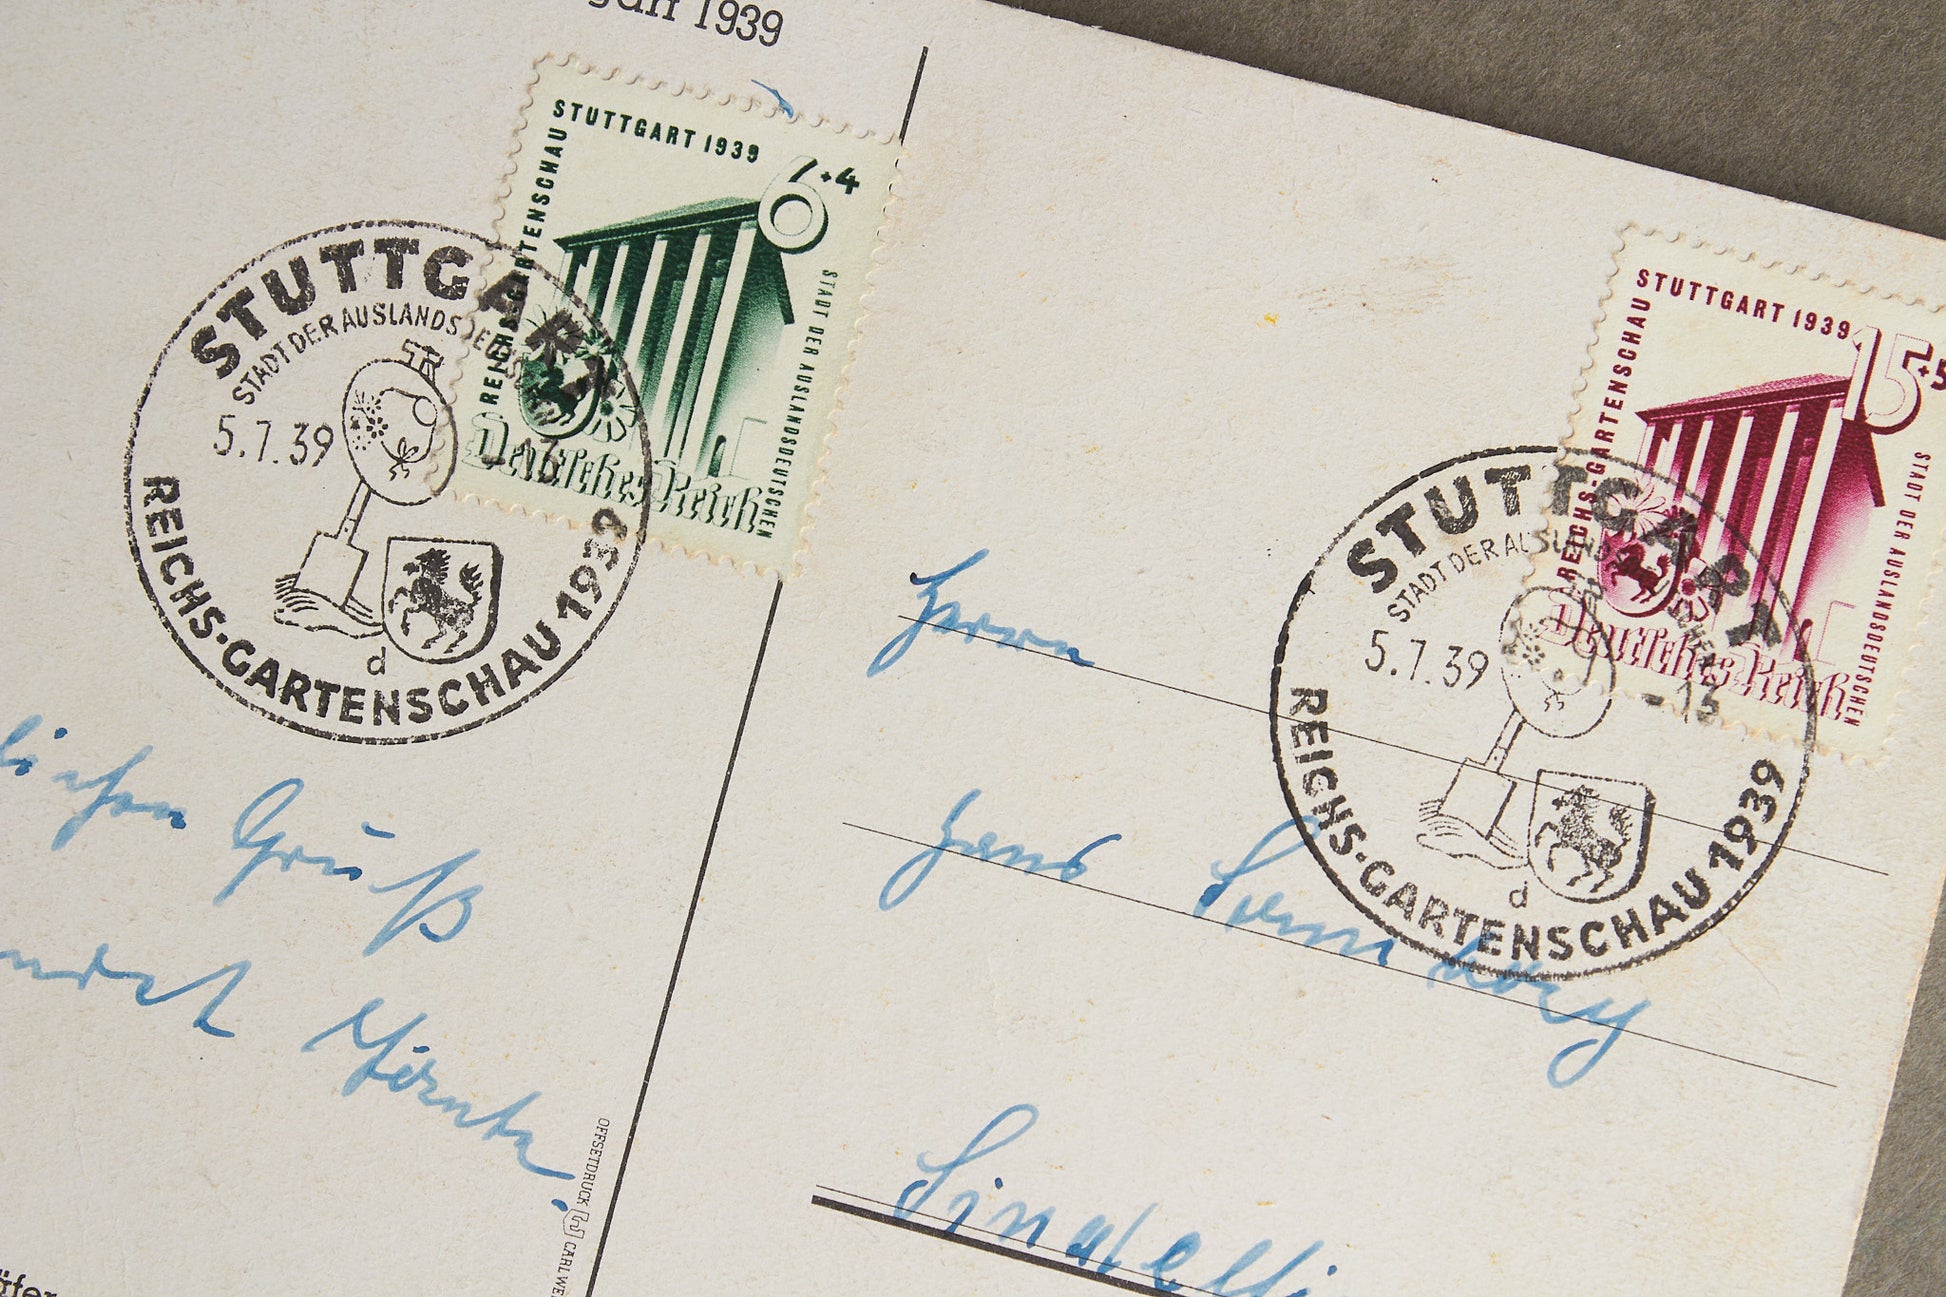 1939
STUTTGART 1939
REICHS-GARTENSCHAU
6+4
STADT DER AUSLANDSDEUTSCHEN
Deutsches Reich
STUTTGART
STADT DER AUSLANDSDEUTSCHEN
5.7.39
-13
d
REICHS-GARTENSCHAU 1939
Gruß
OFFSETDRUCK
CARL WE
STUTTGART 1939
REICHS-GARTENSCHAU
15+5
STADT DER AUSLANDSDEUTSCHEN
Deutsches Reich
STUTTGART
STADT DER AUSLANDSDEUTSCHEN
5.7.39
-13
d
REICHS-GARTENSCHAU 1939
Herrn
Hans
Sindelfi